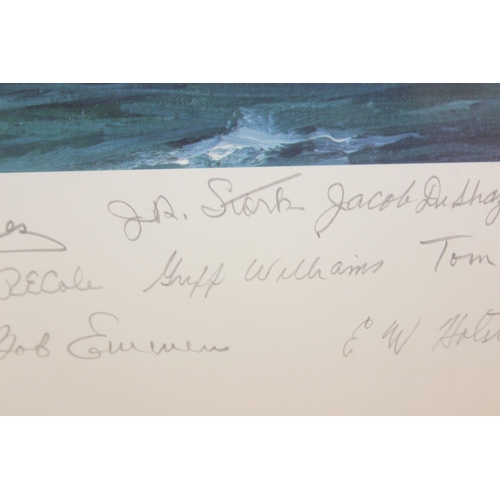 J.A. Stork Jacob DeShaz
RECole Griff Williams Tom
Bob Emmens E W Hols